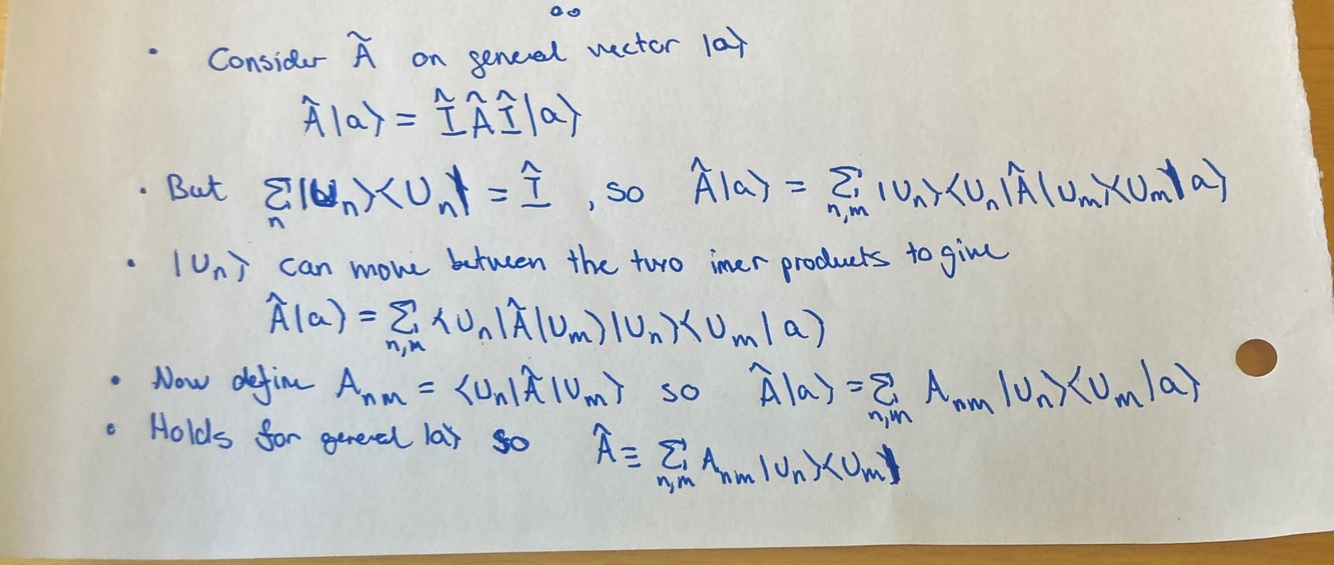 • Consider Ã on general vector |a⟩
Â|a⟩ = ÎÂÎ|a⟩
• But ∑ₙ|Uₙ⟩⟨Uₙ| = Î , so Â|a⟩ = ∑ₙ,ₘ |Uₙ⟩⟨Uₙ|Â|Uₘ⟩⟨Uₘ|a⟩
• |Uₙ⟩ can move between the two imer products to give
Â|a⟩ = ∑ₙ,ₘ ⟨Uₙ|Â|Uₘ⟩|Uₙ⟩⟨Uₘ|a⟩
• Now define Aₙₘ = ⟨Uₙ|Â|Uₘ⟩ so Â|a⟩ = ∑ₙ,ₘ Aₙₘ |Uₙ⟩⟨Uₘ|a⟩
• Holds for general |a⟩ so Â ≡ ∑ₙ,ₘ Aₙₘ |Uₙ⟩⟨Uₘ|